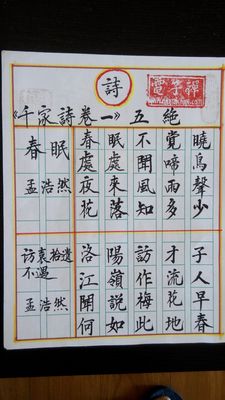 詩
《千家詩卷一》五絕
春眠
孟浩然
春眠不覺曉
處處聞啼鳥
夜來風雨聲
花落知多少
访袁拾遺
不遇
孟浩然
洛陽訪才子
江嶺作流人
聞説梅花早
何如此地春